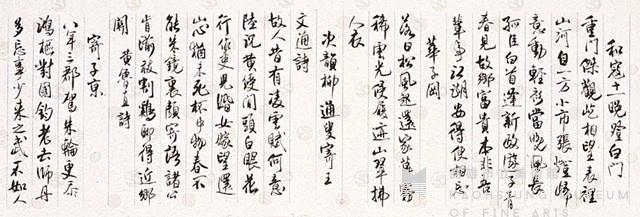 和寇十一晚登白門
重門傑觀屹相望表裡
山河自一方小市張燈歸
意動輕衫當晚風長
孤臣白首逢新政游子青
春見故鄉富貴本非吾
輩事江湖安得便相忘
華子岡
落日松風起還家草露
稀雲光侵履迹山翠拂
人衣
次韻柳通叟寄王
文通詩
故人昔有凌雲賦何意
陸沉黃綬間頭白眼花
行作吏兒婚女嫁望還
山心猶未死杯中物春不
能朱鏡裏顏寄語諸公
肯湔祓割雞今得近鄉
關 黃魯直詩
寄子京
八年三郡駕朱輪更忝
鴻樞對國鈞老去師丹
多忘事少來之武不如人
高雄市立美術館
KAOHSIUNG MUSEUM
OF FINE ARTS